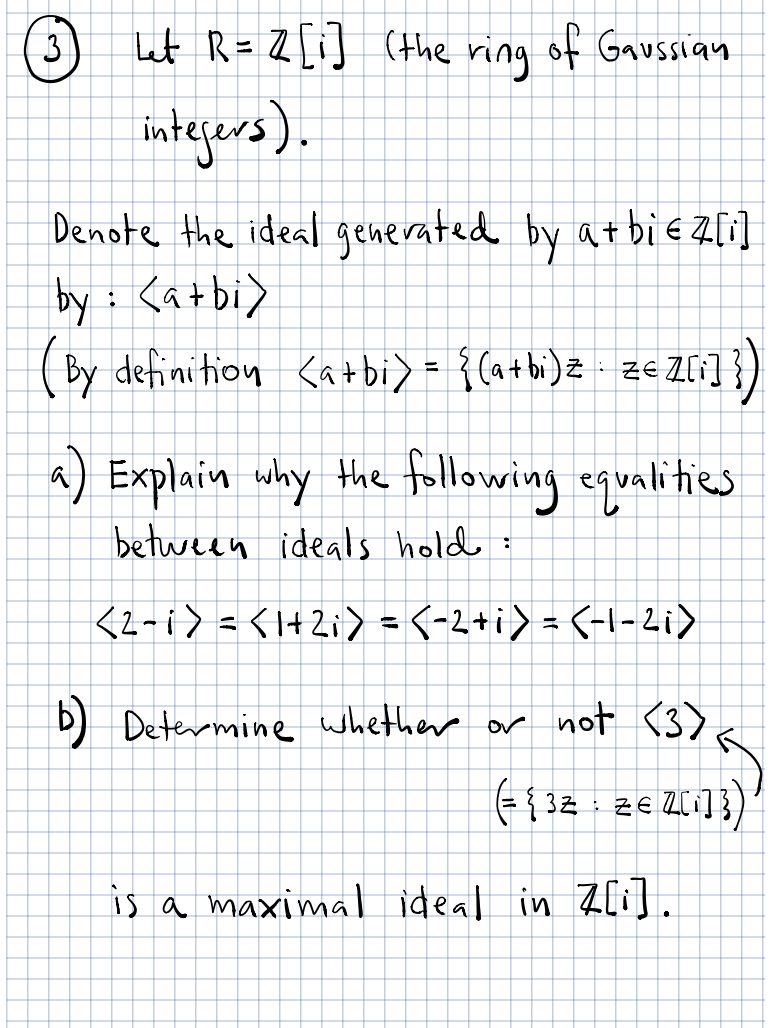 3 Let R = ℤ[i] (the ring of Gaussian
integers).
Denote the ideal generated by a+bi ∈ ℤ[i]
by : <a+bi>
(By definition <a+bi> = {(a+bi)z : z ∈ ℤ[i]})
a) Explain why the following equalities
between ideals hold :
<2-i> = <1+2i> = <-2+i> = <-1-2i>
b) Determine whether or not <3>
(= {3z : z ∈ ℤ[i]})
is a maximal ideal in ℤ[i].